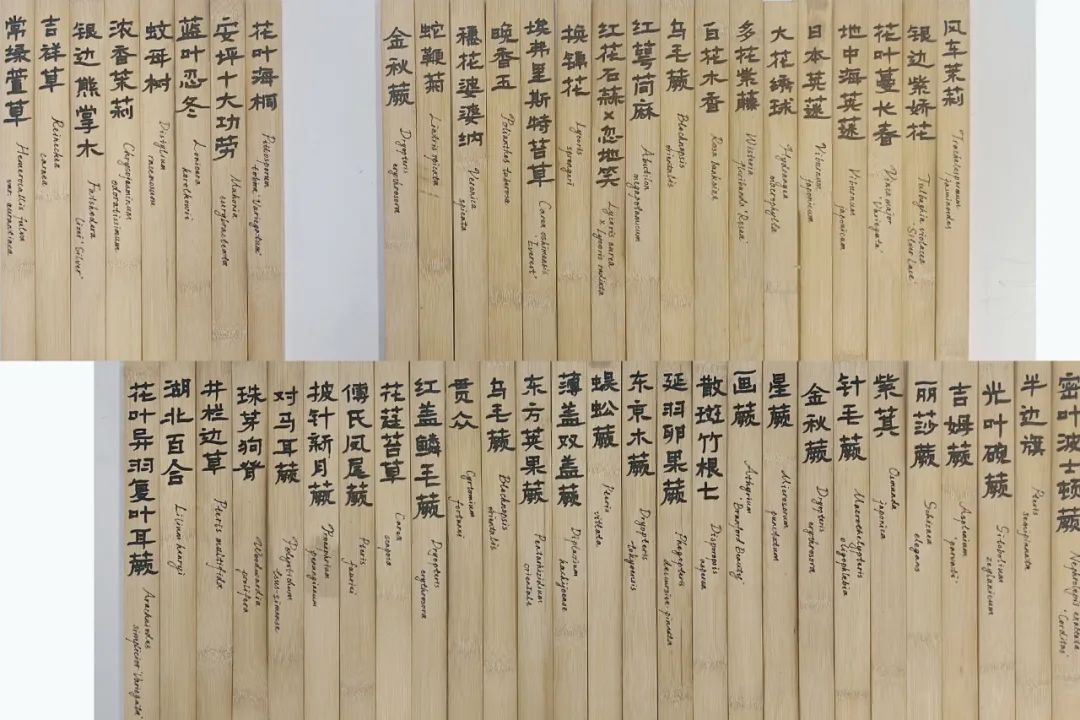 常绿萱草
Hemerocallis fulva
var. aurantiaca
吉祥草
Reineckea
carnea
银边熊掌木
Fatshedera
lizei 'Silver'
浓香茉莉
Chrysojasminum
odoratissimum
蚊母树
Distylium
racemosum
蓝叶忍冬
Lonicera
korolkowii
安坪十大功劳
Mahonia
eurybracteata
花叶海桐
Pittosporum
tobira 'Variegatum'
金秋蕨
Drypteris
erythrosora
蛇鞭菊
Liatris spicata
穗花婆婆纳
Veronica
spicata
晚香玉
Polianthes tuberosa
埃弗里斯特苔草
Carex oshimensis
'Everest'
换锦花
Lycoris
sprengeri
红花石蒜×忽地笑
Lycoris aurea
× Lycoris radiata
红萼苘麻
Abutilon
megapotamicum
乌毛蕨
Blechnopsis
orientalis
百花木香
Rosa banksiae
多花紫藤
Wisteria
floribunda 'Rosea'
大花绣球
Hydrangea
macrophylla
日本荚蒾
Viburnum
japonicum
地中海荚蒾
Viburnum
japonicum
花叶蔓长春
Vinca major
'Variegata'
银边紫娇花
Tulbaghia violacea
'Silver Lace'
风车茉莉
Trachelospermum
jasminoides
花叶异羽复叶耳蕨
Arachniodes
simplicior 'Variegata'
湖北百合
Lilium henryi
井栏边草
Pteris multifida
珠芽狗脊
Woodwardia
prolifera
对马耳蕨
Polystichum
tsus-simense
披针新月蕨
Pronephrium
penangianum
傅氏凤尾蕨
Pteris
fauriei
花莛苔草
Carex
scaposa
红盖鳞毛蕨
Dryopteris
erythrosora
贯众
Cyrtomium
fortunei
乌毛蕨
Blechnopsis
orientalis
东方荚果蕨
Pentarhizidium
orientale
薄盖双盖蕨
Diplazium
hachijoense
蜈蚣蕨
Pteris
vittata
东京木蕨
Dryopteris
tokyoensis
延羽卵果蕨
Phegopteris
decursive-pinnata
散斑竹根七
Disporopsis
aspersa
画蕨
Athyrium
'Branford Beauty'
星蕨
Microsorum
punctatum
金秋蕨
Drypteris
erythrosora
针毛蕨
Macrothelypteris
oligophlebia
紫萁
Osmunda
japonica
丽莎蕨
Schizaea
elegans
吉姆蕨
Asplenium
'parvati'
光叶碗蕨
Sitobolium
zeylanicum
半边旗
Pteris
semipinnata
密叶波士顿蕨
Nephrolepis exaltata
'Corditas'